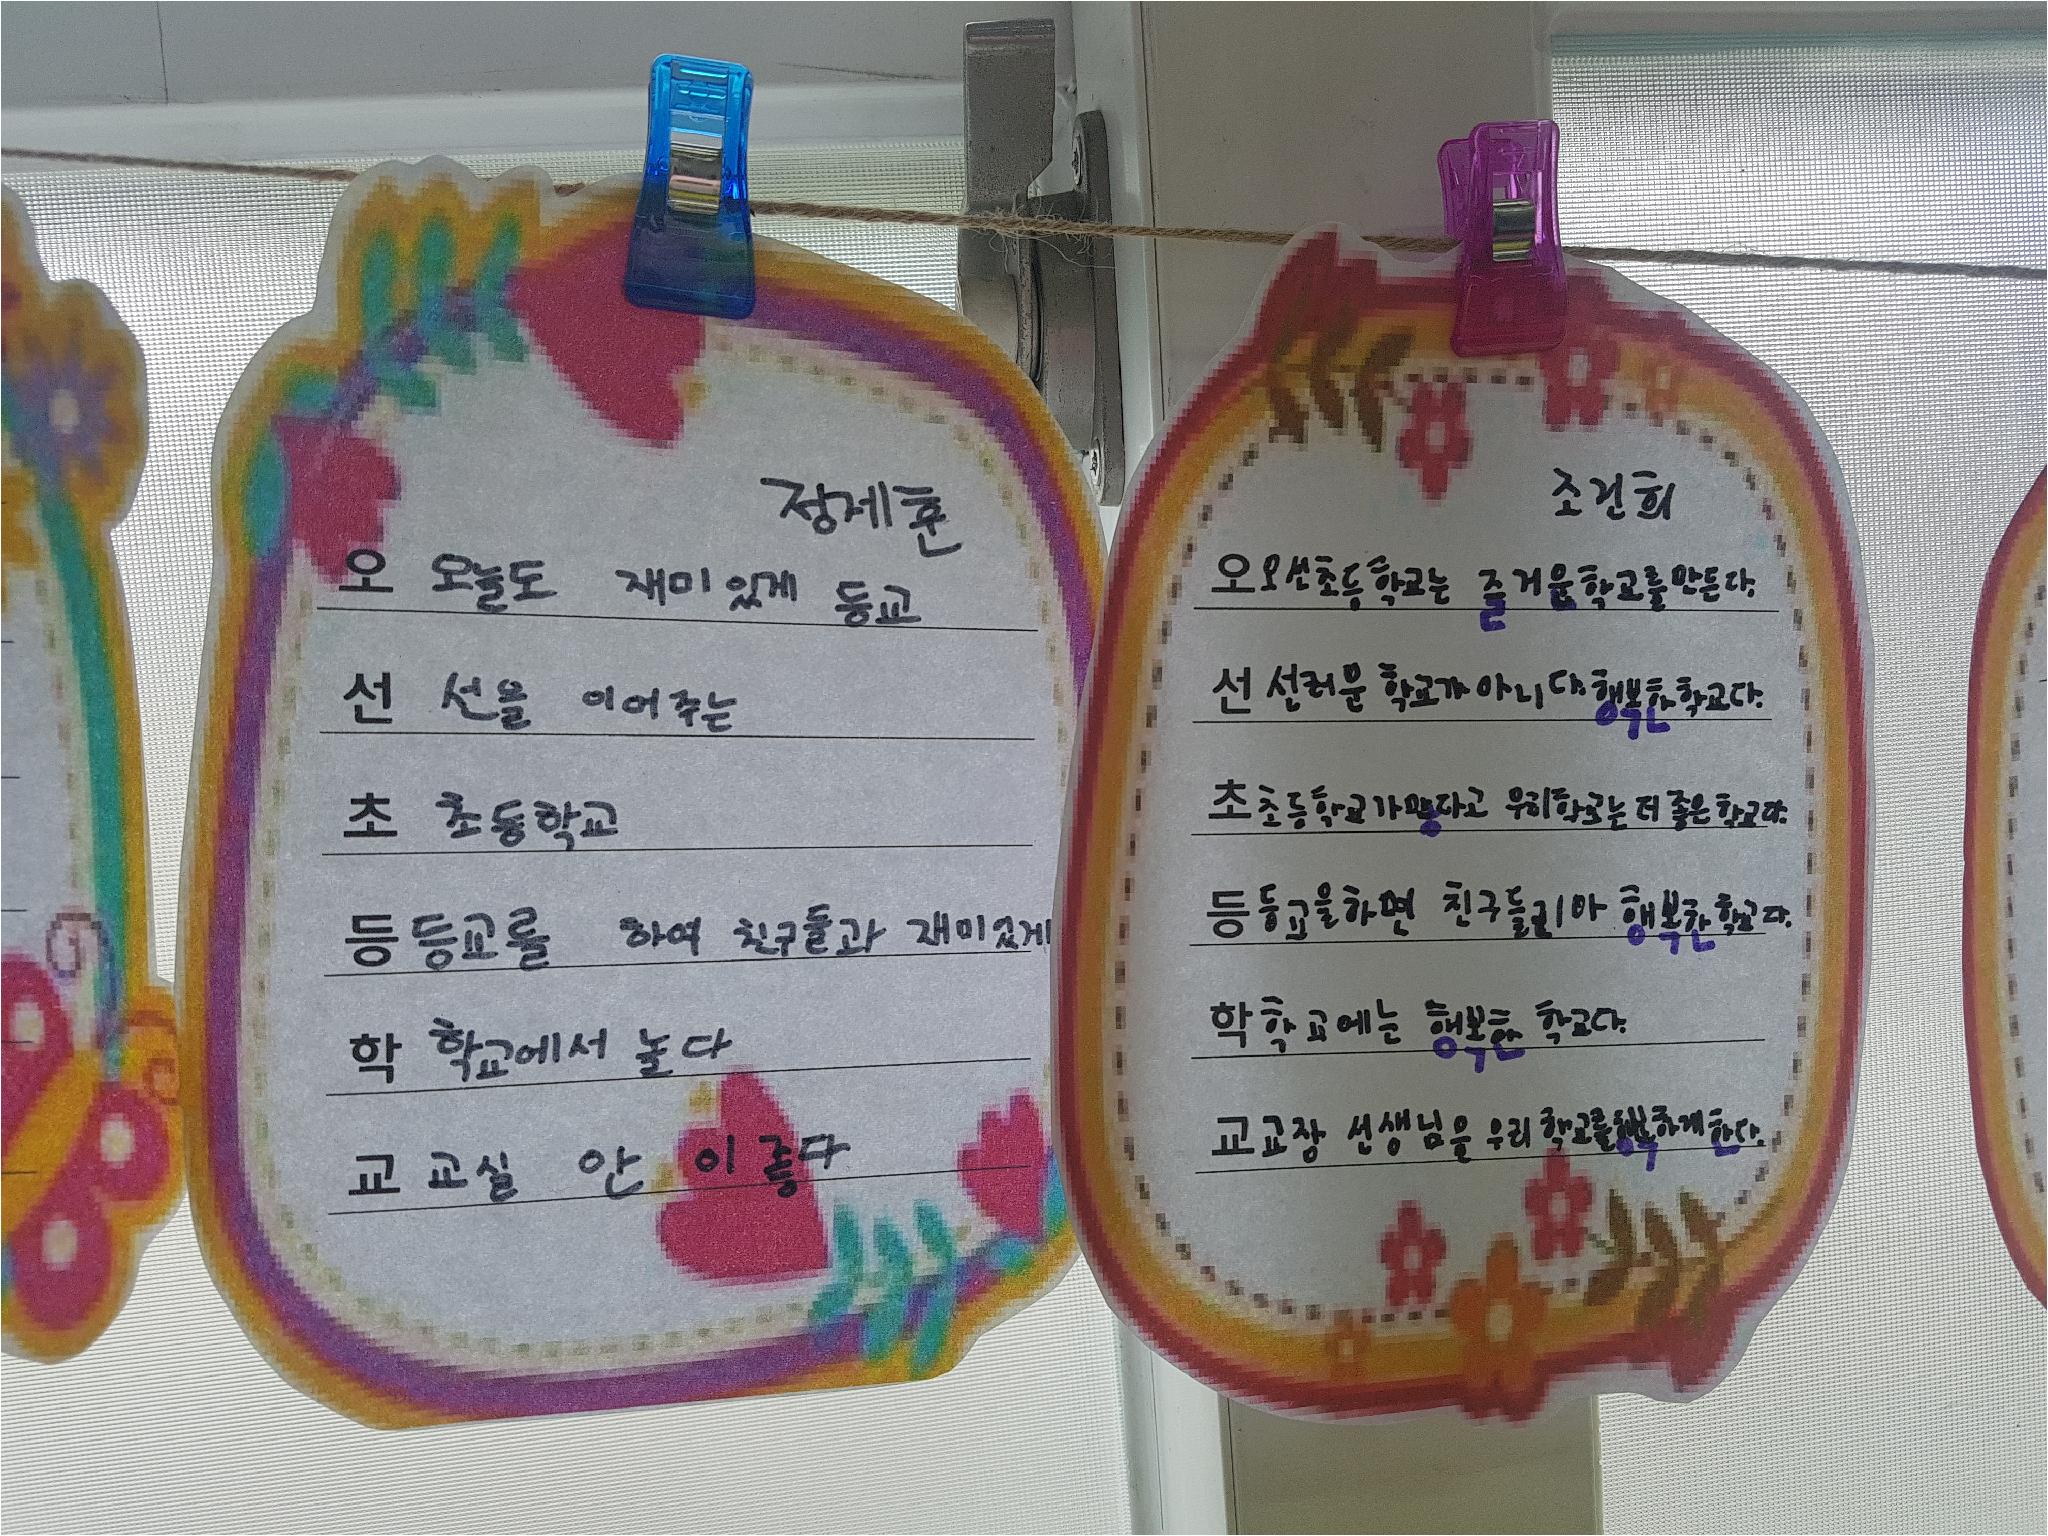 정제훈
오 오늘도 재미있게 등교
선 선을 이어주는
초 초등학교
등 등교를 하여 친구들과 재미있게
학 학교에서 놀다
교 교실 안 이 좋다
조건희
오 오선초등학교는 즐거운학교를만든다.
선 선러운 학교가 아니다. 행복한학교다.
초 초등학교가많다고 우리학교는더좋은학교다.
등 등교을하면 친구들리아 행복한학교다.
학 학교에는 행복한 학교다.
교 교장 선생님은 우리 학교를행복하게한다.